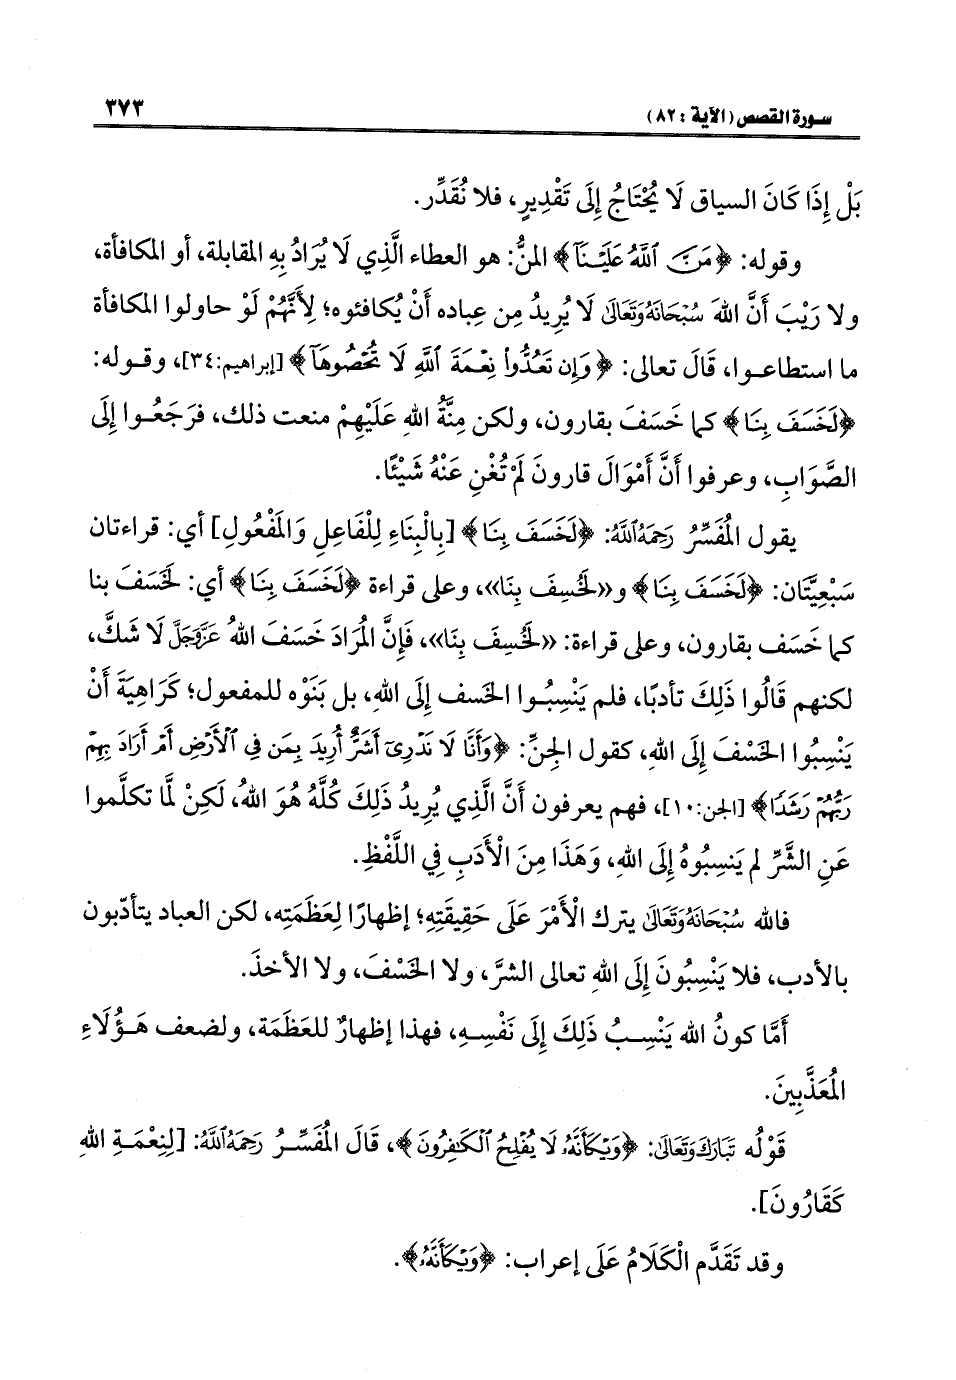 سورة القصص (الآية : ٨٢)
٣٧٣
بَلْ إِذَا كَانَ السياق لَا يُحْتَاجُ إِلَى تَقْدِيرٍ، فلا نُقَدِّر.
وقوله: ﴿مَنَّ ٱللَّهُ عَلَيْنَا﴾ المنُّ: هو العطاء الَّذِي لَا يُرَادُ بِهِ المقابلة، أو المكافأة،
ولا رَيْبَ أَنَّ اللهَ سُبْحَانَهُ وَتَعَالَى لَا يُرِيدُ مِن عِباده أَنْ يُكافئوه؛ لِأَنَّهُمْ لَوْ حاولوا المكافأة
ما استطاعوا، قَالَ تعالى: ﴿وَإِن تَعُدُّوا۟ نِعْمَةَ ٱللَّهِ لَا تُحْصُوهَآ﴾ [إبراهيم:٣٤]، وقوله:
﴿لَخَسَفَ بِنَا﴾ كما خَسَفَ بقارون، ولكن مِنَّةُ اللهِ عَلَيْهِمْ منعت ذلك، فرَجَعُوا إِلَى
الصَّوَابِ، وعرفوا أَنَّ أَمْوَالَ قارونَ لَمْ تُغْنِ عَنْهُ شَيْئًا.
يقول المُفَسِّرُ رَحِمَهُ اللَّهُ: ﴿لَخَسَفَ بِنَا﴾ [بِالْبِنَاءِ لِلْفَاعِلِ وَالمَفْعُولِ] أي: قراءتان
سَبْعِيَّتَان: ﴿لَخَسَفَ بِنَا﴾ و«لَخُسِفَ بِنَا»، وعلى قراءة ﴿لَخَسَفَ بِنَا﴾ أي: لخَسَفَ بنا
كما خَسَف بقارون، وعلى قراءة: «لَخُسِفَ بِنَا»، فَإِنَّ المُرَادَ خَسَفَ اللهُ عَزَّوَجَلَّ لَا شَكَّ،
لكنهم قَالُوا ذَلِكَ تأدبًا، فلم يَنْسِبُوا الخَسف إِلَى اللهِ، بل بَنَوْه للمفعول؛ كَرَاهِيَةَ أَنْ
يَنْسِبُوا الخَسْفَ إِلَى اللهِ، كقول الجنِّ: ﴿وَأَنَّا لَا نَدْرِىٓ أَشَرٌّ أُرِيدَ بِمَن فِى ٱلْأَرْضِ أَمْ أَرَادَ بِهِمْ
رَبُّهُمْ رَشَدًا﴾ [الجن:١٠]، فهم يعرفون أَنَّ الَّذِي يُرِيدُ ذَلِكَ كُلَّهُ هُوَ اللهُ، لَكِنْ لمَّا تكلَّموا
عَنِ الشَّرِّ لم يَنسِبُوهُ إِلَى اللهِ، وَهَذَا مِنَ الْأَدَبِ فِي اللَّفْظِ.
فالله سُبْحَانَهُ وَتَعَالَى يترك الْأَمْرَ عَلَى حَقِيقَتِهِ؛ إظهارًا لِعَظَمَتِه، لكن العباد يتأدَّبون
بالأدب، فلا يَنْسِبُونَ إِلَى اللهِ تعالى الشرَّ، ولا الخَسْفَ، ولا الأخذَ.
أَمَّا كونُ الله يَنْسِبُ ذَلِكَ إِلَى نَفْسِهِ، فهذا إظهارٌ للعَظَمَة، ولضعف هَؤُلَاءِ
المُعَذَّبِينَ.
قَوْلُه تَبَارَكَ وَتَعَالَى: ﴿وَيْكَأَنَّهُۥ لَا يُفْلِحُ ٱلْكَٰفِرُونَ﴾، قَالَ المُفَسِّرُ رَحِمَهُ اللَّهُ: [لِنِعْمَةِ اللهِ
كَقَارُونَ].
وقد تَقَدَّم الْكَلَامُ عَلَى إعراب: ﴿وَيْكَأَنَّهُۥ﴾.